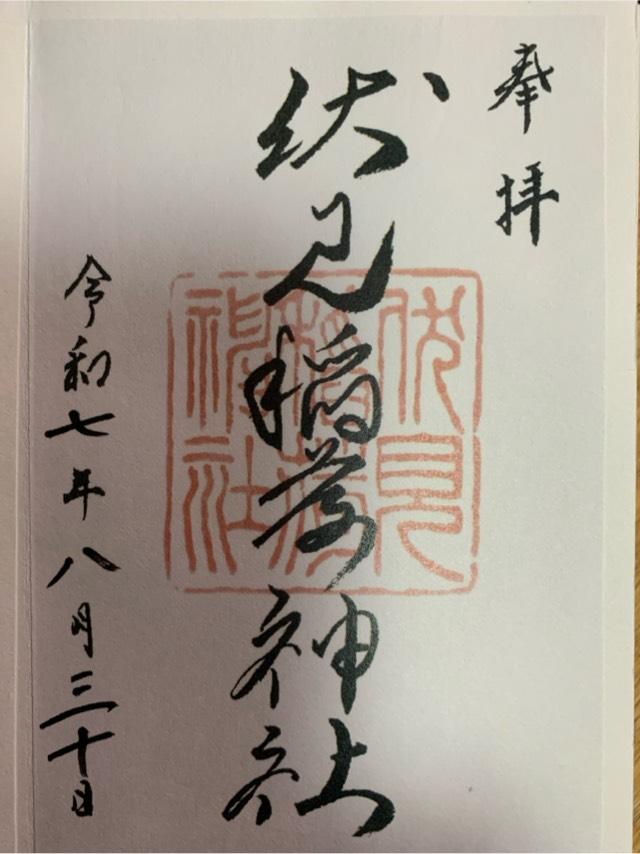 奉拝
伏見稲荷神社
伏見
稲荷
神社
令和七年八月三十日